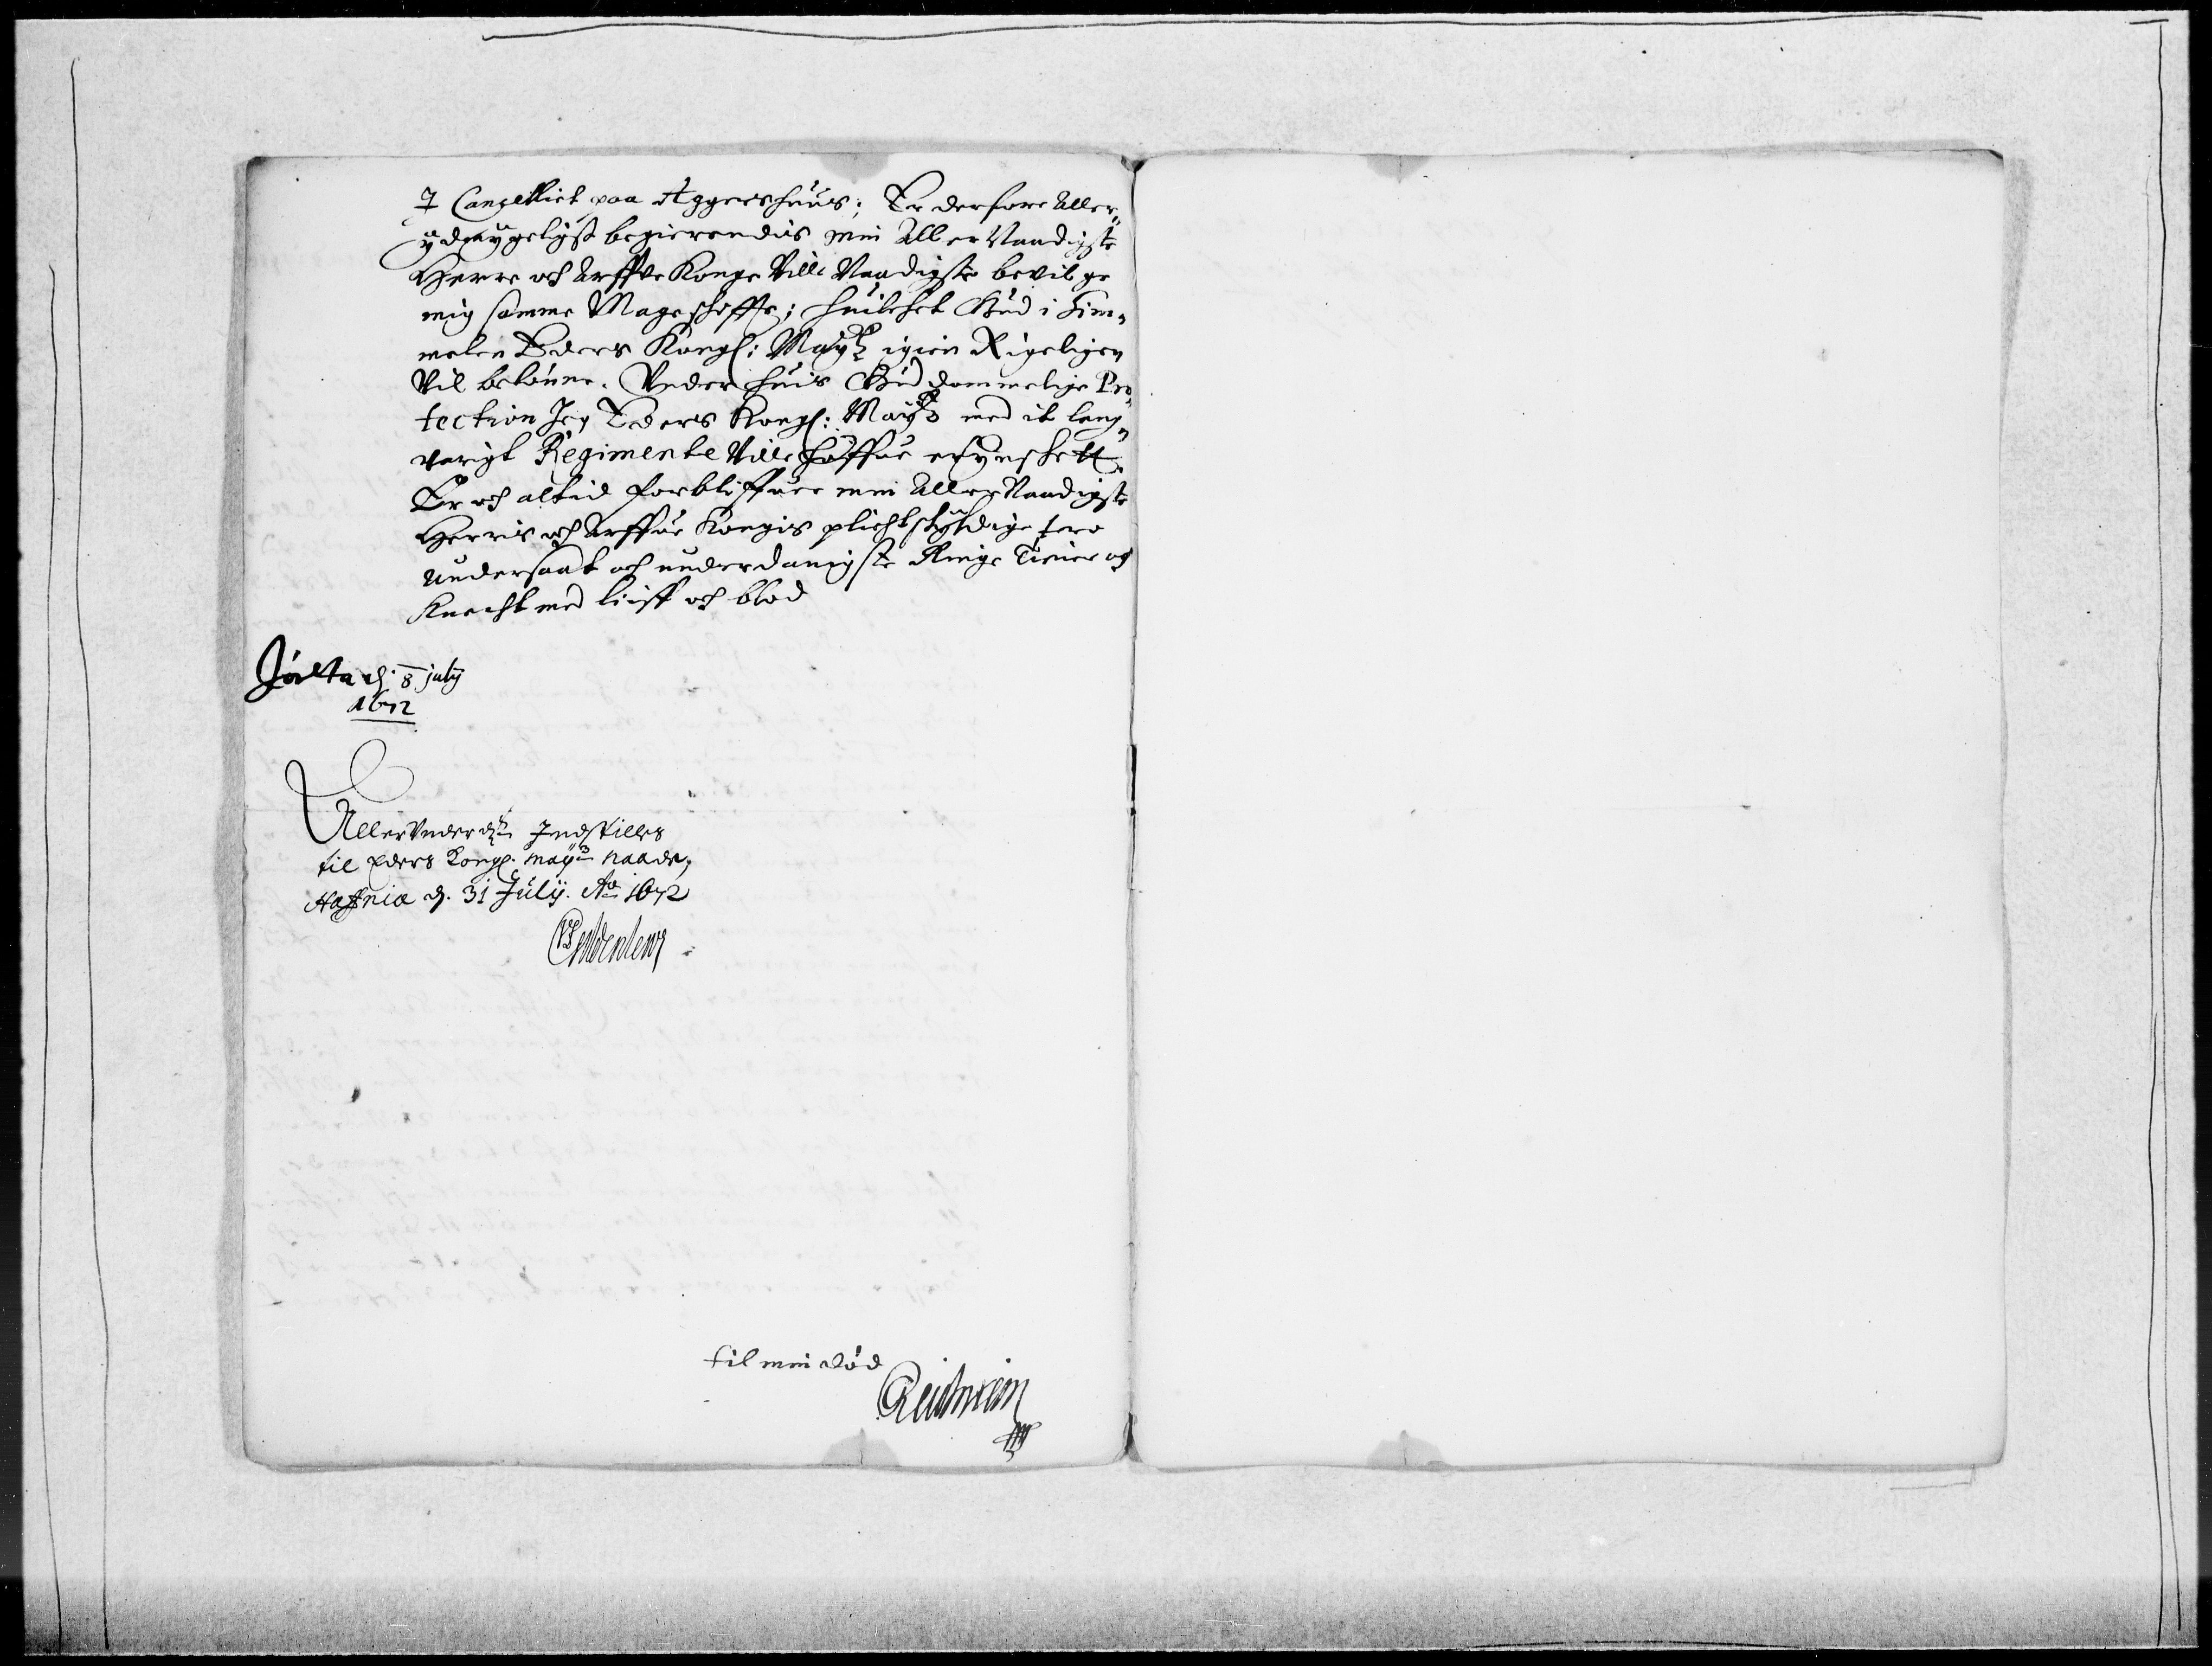 J Cancelliet paa Aggershuus; Er derfore aller„
ydmygeligst begierendis min Aller Naadigste
Herre och Arffve Konge Ville Naadigste bevilge
mig samme Mageskiffte; huilchet Gud i Him„
melen Eders Kongl: Maytz igien Rigeligen
Vil belønne. Under huis Guddommelige Pro„
tection Jeg Eders Kongl: Maytz med it lang„
varigt Regimente Ville haffue ...
Er och altid forbliffuer min Aller Naadigste
Herris och Arffue Kongis plichtskyldige tro
undersaat och underdanigste Ringe Tiener og
Knecht med liiff och blod
Jdlta d: 8 july
1672
AllerUnderdgst Indstilles
til Eders Kongl. mayts naade,
Haffniæ d. 31 Julij. Ao 1672
Gyldenlew
til min død
Reichwein